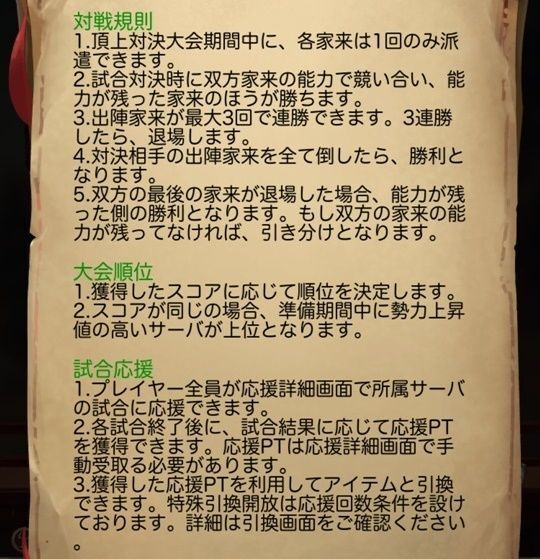 対戦規則
1.頂上対決大会期間中に、各家来は1回のみ派
遣できます。
2.試合対決時に双方家来の能力で競い合い、能
力が残った家来のほうが勝ちます。
3.出陣家来が最大3回で連勝できます。3連勝
したら、退場します。
4.対決相手の出陣家来を全て倒したら、勝利と
なります。
5.双方の最後の家来が退場した場合、能力が残
った側の勝利となります。もし双方の家来の能
力が残ってなければ、引き分けとなります。
大会順位
1.獲得したスコアに応じて順位を決定します。
2.スコアが同じの場合、準備期間中に勢力上昇
値の高いサーバが上位となります。
試合応援
1.プレイヤー全員が応援詳細画面で所属サーバ
の試合に応援できます。
2.各試合終了後に、試合結果に応じて応援PT
を獲得できます。応援PTは応援詳細画面で手
動受取る必要があります。
3.獲得した応援PTを利用してアイテムと引換
できます。特殊引換開放は応援回数条件を設け
ております。詳細は引換画面をご確認ください
。